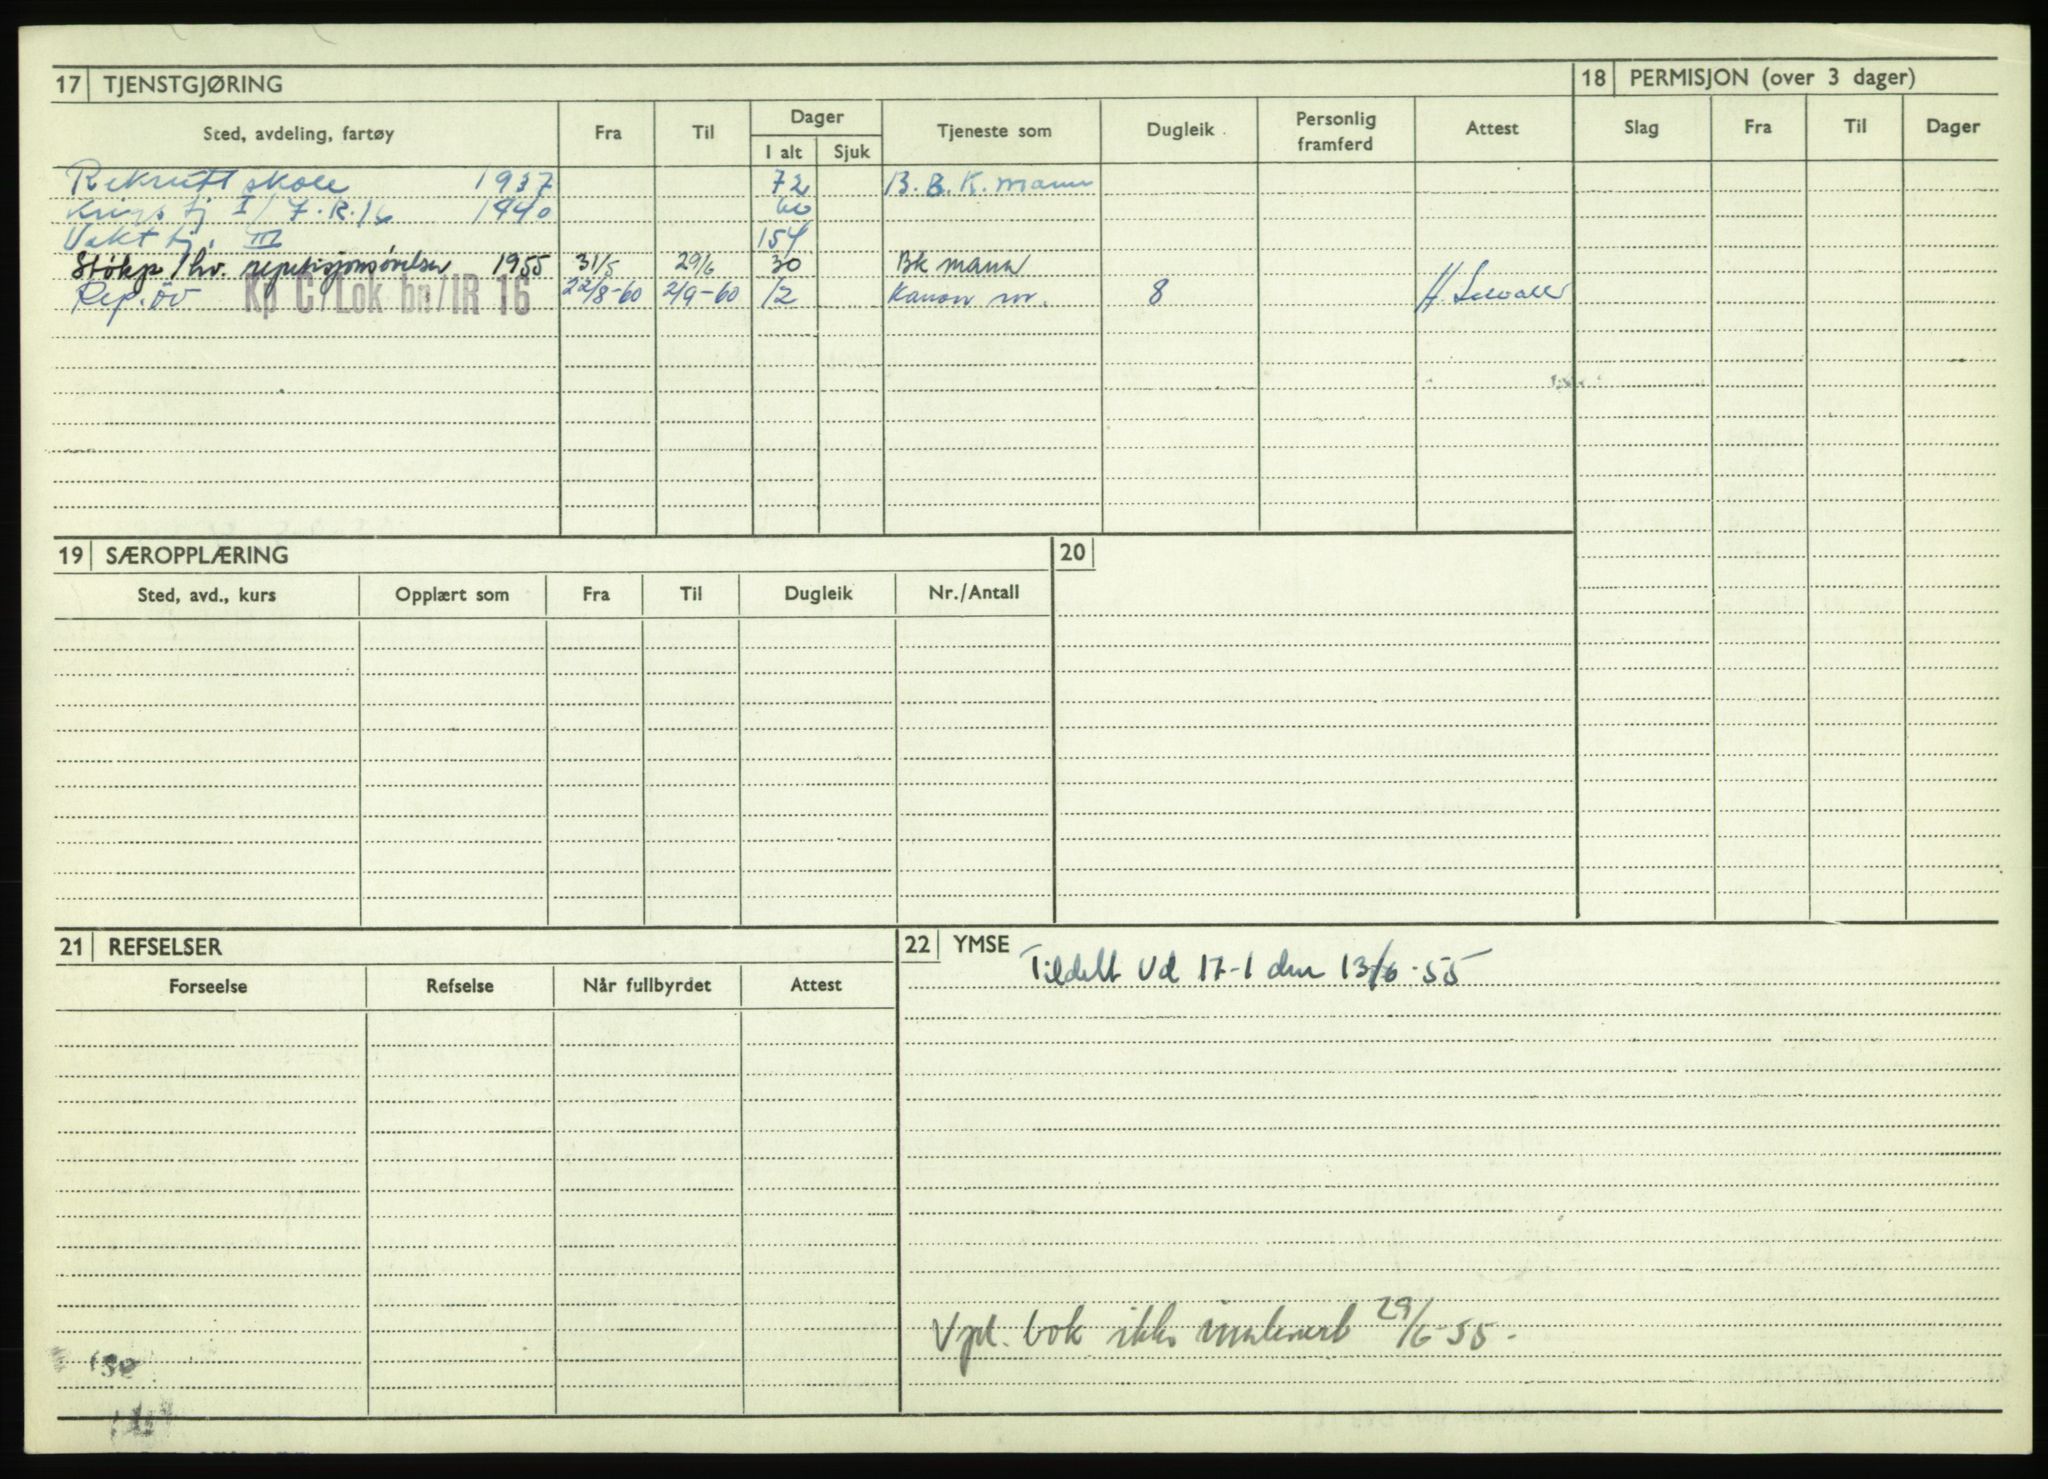 17 TJENSTGJØRING
18 PERMISJON (over 3 dager)
Sted, avdeling, fartøy Fra Til Dager I alt Sjuk Tjeneste som Dugleik Personlig framferd Attest
Slag Fra Til Dager
Rekruttskole 1937 72 B.B.K. mann
Krigstj I/7.R.16 1940 60
Vakt tj. III 154
Støkp/hv. repetisjonsøvelser 1955 31/5 29/6 30 Bk mann
Rep. öv Kp C/Lok bn/IR 16 22/8-60 2/9-60 12 Kanon m. 8 H.
19 SÆROPPLÆRING
20
Sted, avd., kurs Opplært som Fra Til Dugleik Nr./Antall
21 REFSELSER
22 YMSE
Tildelt Vd 17-1 den 13/6-55
Forseelse Refselse Når fullbyrdet Attest
Vpl. bok ikke 29/6-55-